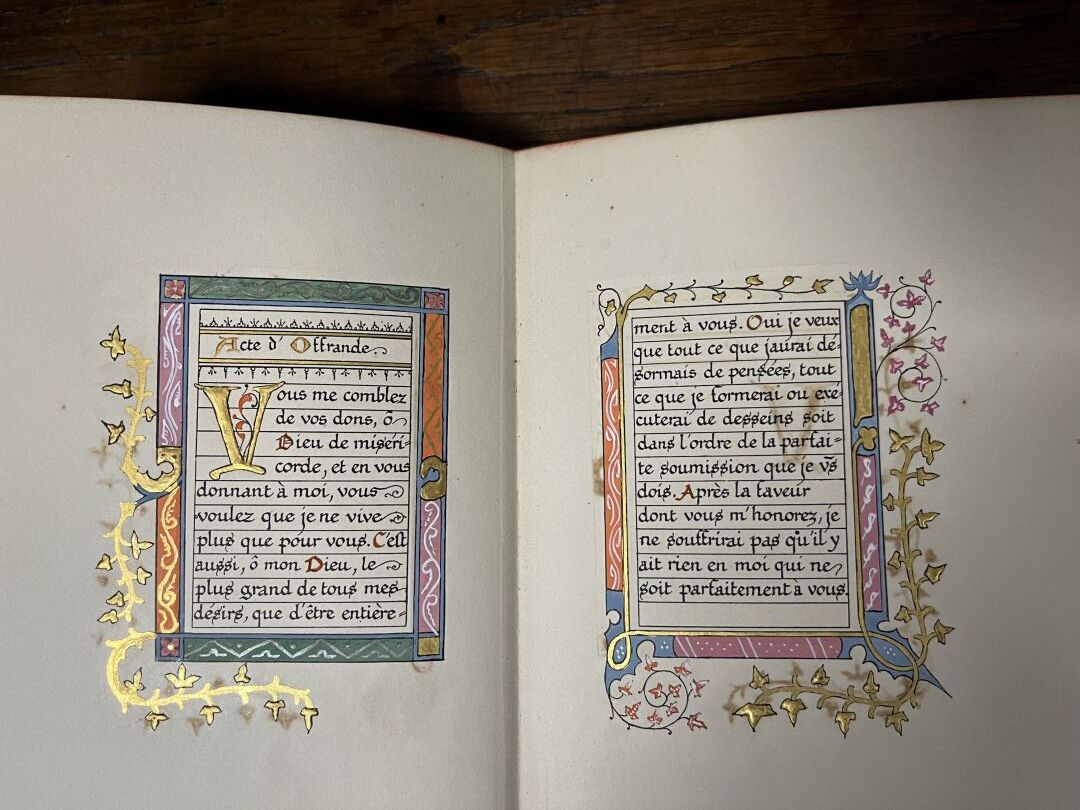 Acte d' Offrande.
Vous me comblez
de vos dons, ô
Dieu de miséri-
corde, et en vous
donnant à moi, vous
voulez que je ne vive
plus que pour vous. C'est
aussi, ô mon Dieu, le
plus grand de tous mes
désirs, que d'être entière-
ment à vous. Oui je veux
que tout ce que j'aurai dé-
sormais de pensées, tout
ce que je formerai ou exé-
cuterai de desseins soit
dans l'ordre de la parfai-
te soumission que je vs
dois. Après la faveur
dont vous m'honorez, je
ne souffrirai pas qu'il y
ait rien en moi qui ne
soit parfaitement à vous.